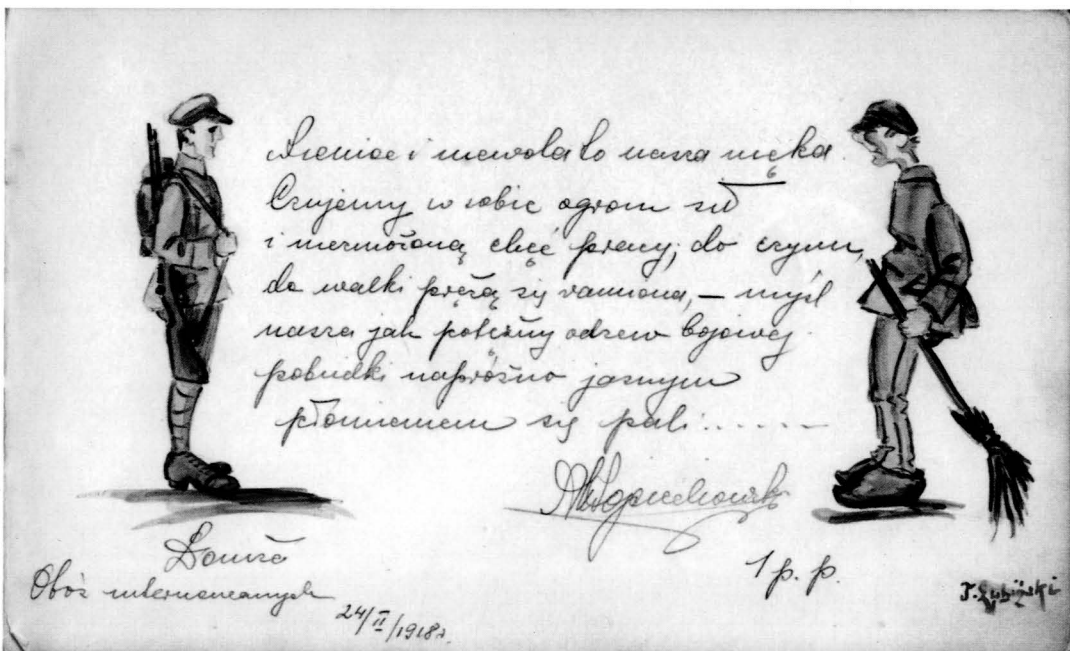 i niewola to nasza męka.
Czujemy w sobie ogrom sił
i niezmożoną chęć pracy; do czynu,
do walki prężą się ramiona, – myśl
nasza jak potężny odzew bojowej
pobudki napróżno jasnym
płomieniem się pali......
AWojciechowski
1 p. p.
Łomża
Obóz internowanych
24/II/1918 r.